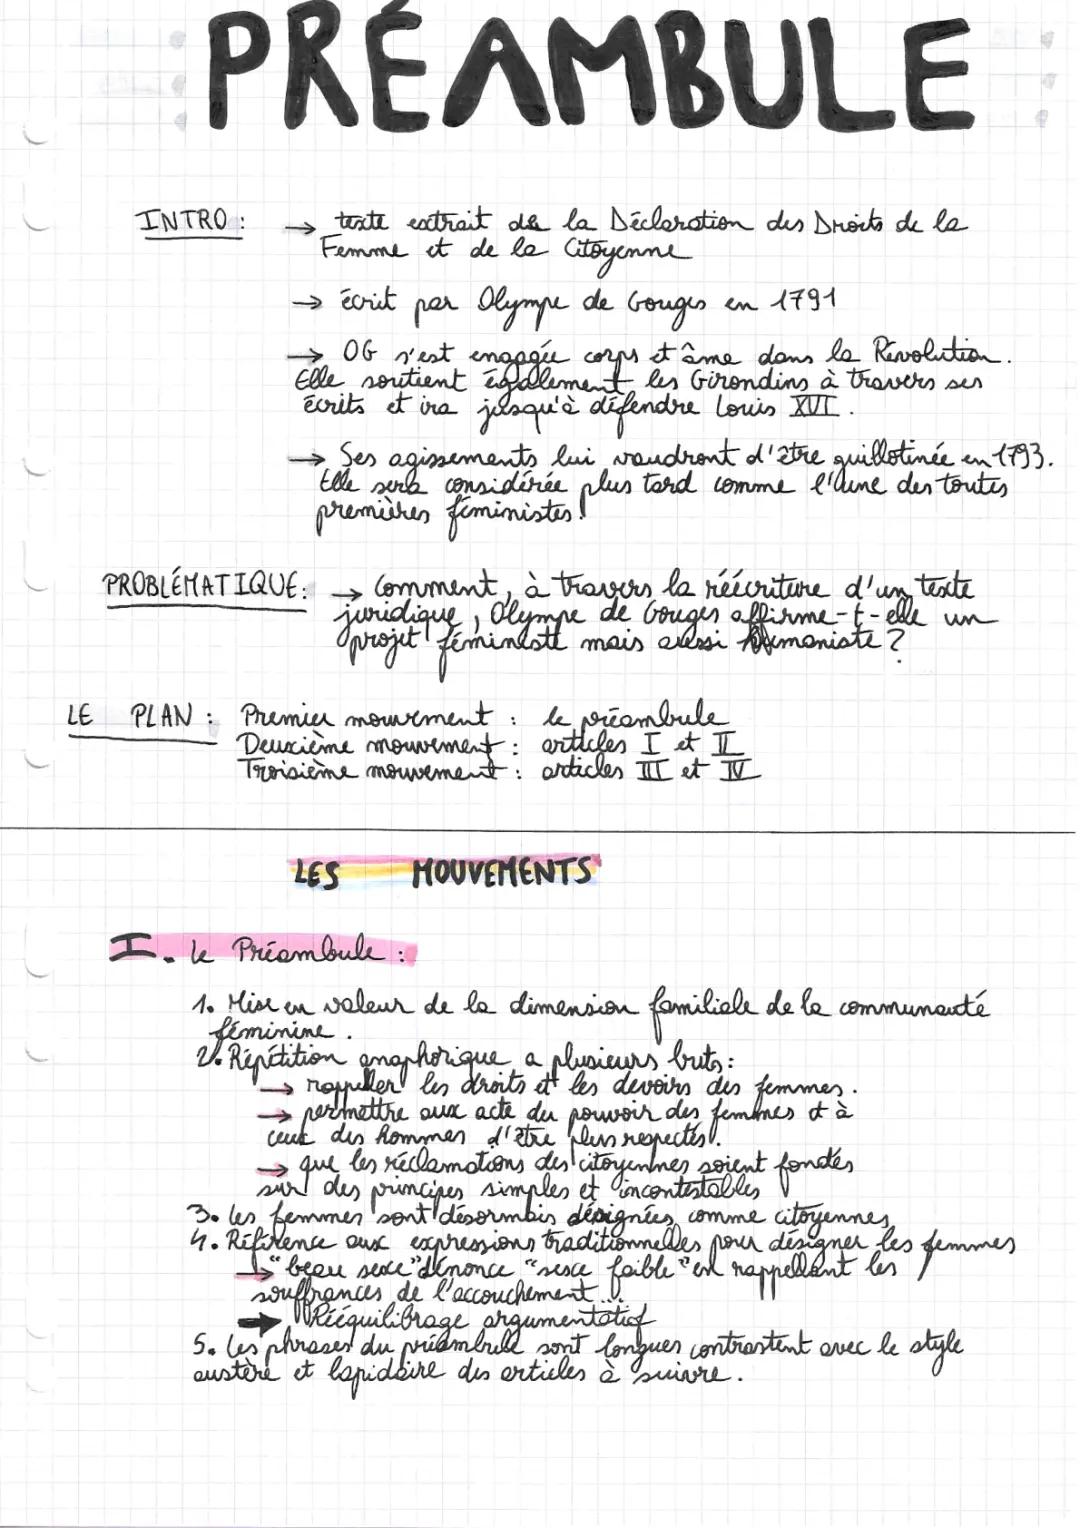 PRÉAMBULE
INTRO : → texte extrait de la Déclaration des Droits de la
Femme et de la Citoyenne
→ écrit par Olympe de Gouges en 1791
→ OG s'est engagée corps et âme dans la Révolution.
Elle soutient également les Girondins à travers ses
écrits et ira jusqu'à défendre Louis XVI.
→ Ses agissements lui vaudront d'être guillotinée en 1793.
Elle sera considérée plus tard comme l'une des toutes
premières féministes.
PROBLÉMATIQUE : → Comment, à travers la réécriture d'un texte
juridique, Olympe de Gouges affirme-t-elle un
projet féministe mais aussi humaniste ?
LE PLAN : Premier mouvement : le préambule
Deuxième mouvement : articles I et II
Troisième mouvement : articles III et IV
LES MOUVEMENTS
I. Le Préambule :
1. Mise en valeur de la dimension familiale de la communauté
féminine.
2. Répétition anaphorique a plusieurs buts :
→ rappeller les droits et les devoirs des femmes.
→ permettre aux acte du pouvoir des femmes et à
ceux des hommes d'être plus respectés.
→ que les réclamations des citoyennes soient fondés
sur des principes simples et incontestables
3. Les femmes sont désormais désignées comme citoyennes
4. Référence aux expressions traditionnelles pour désigner les femmes
→ "beau sexe" dénonce "sexe faible" en rappellant les
souffrances de l'accouchement...
→ Rééquilibrage argumentatif
5. Les phrases du préambule sont longues contrastent avec le style
austère et lapidaire des articles à suivre.